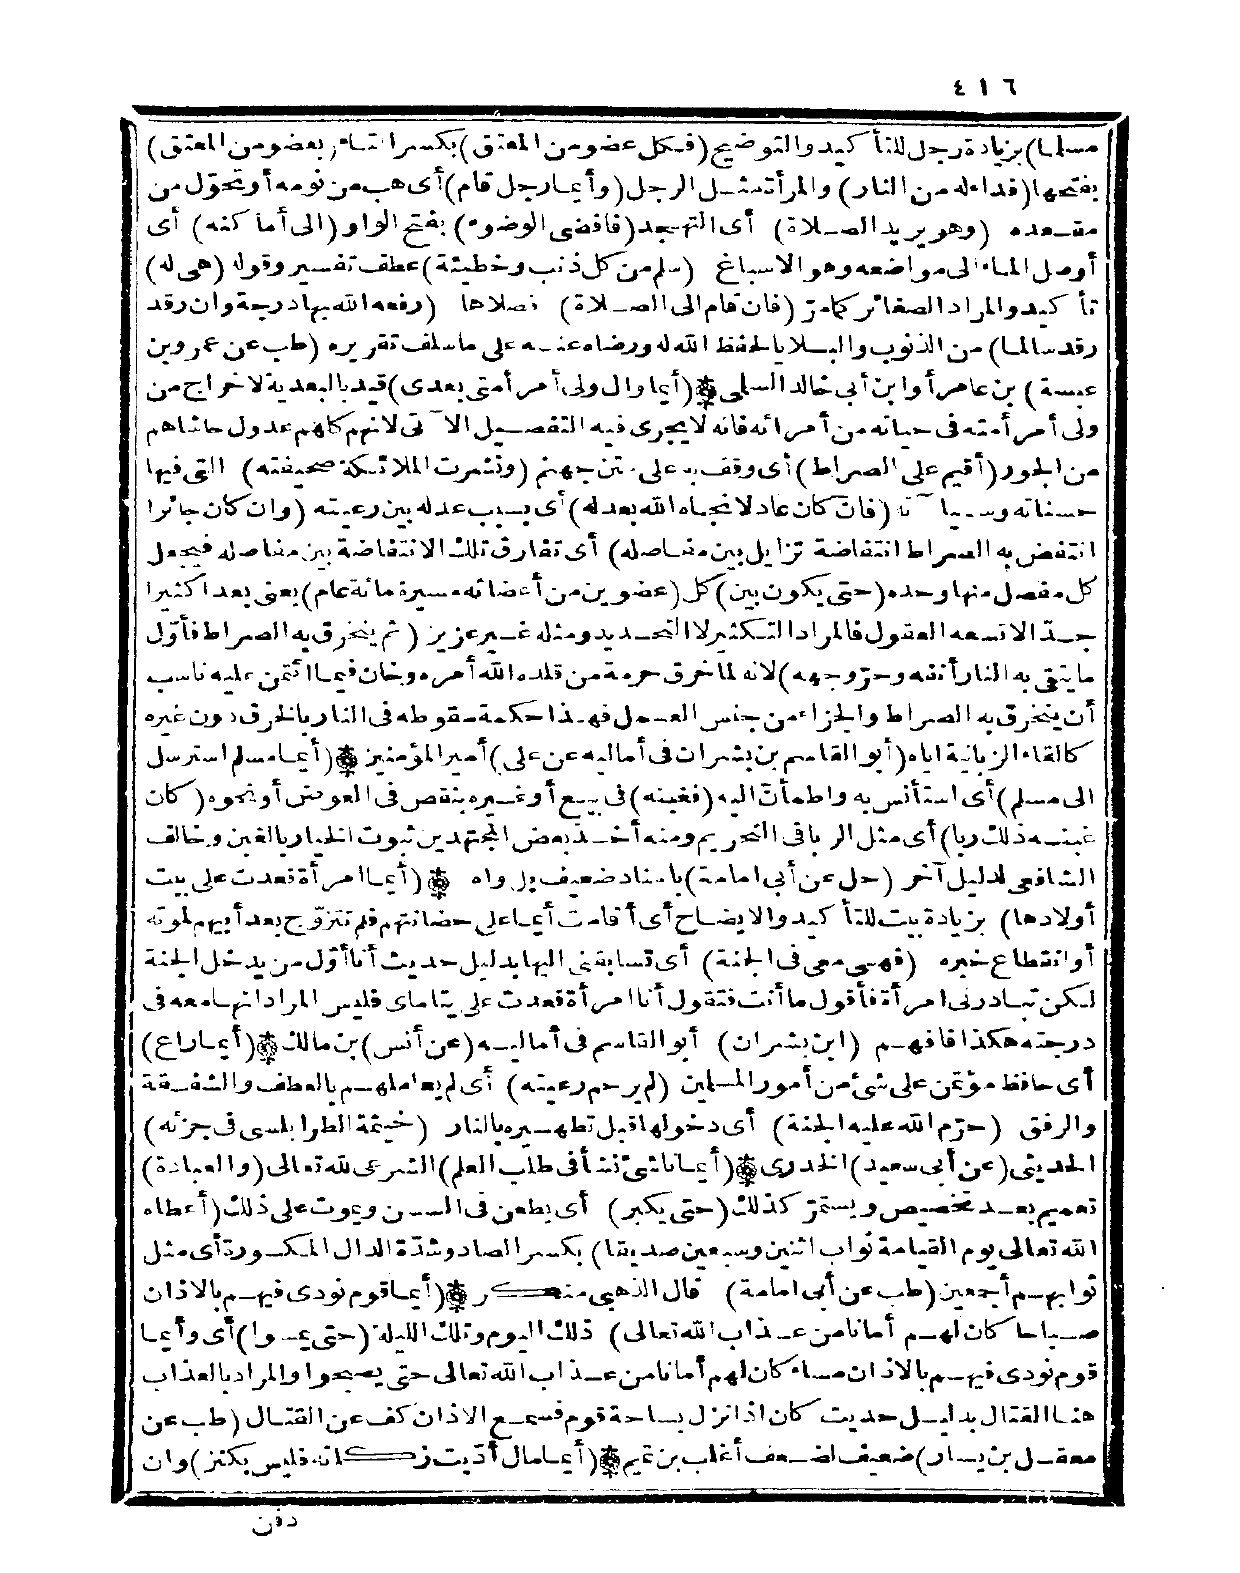 ٤١٦
مسلما) بزيادة رجل للتأكيد والتوضيح (فكل عضو من المعتق) بكسر التاء (بعضو من المعتق)
بفتحها (فداء له من النار) والمرأة مثل الرجل (وأيما رجل قام) أى هب من نومه أو تحوّل من
مقعده (وهو يريد الصلاة) أى التهجد (فافضى الوضوء) بفتح الواو (الى أماكنه) أى
أوصل الماء الى مواضعه وهو الاسباغ (سلم من كل ذنب وخطيئة) عطف تفسير وقوله (هى له)
تأكيد والمراد الصغائر كما مرّ (فان قام الى الصلاة) فصلاها (رفعه الله بها درجة وان رقد
رقد سالما) من الذنوب والبلايا لحفظ الله له ورضاه عنه على ما سلف تقريره (طب عن عمرو بن
عبسة) بن عامر أو ابن أبى خالد السلمى (أيما وال ولى أمر أمتى بعدى) قيد بالبعدية لاخراج من
ولى أمر أمته فى حياته من أمرائه فانه لا يجرى فيه التفصيل الآتى لانهم كلهم عدول حاشاهم
من الجور (أقيم على الصراط) أى وقف به على متن جهنم (ونشرت الملائكة صحيفته) التى فيها
حسناته وسيآته (فان كان عادلا نجاه الله بعدله) أى بسبب عدله بين رعيته (وان كان جائرا
انتفض به الصراط انتفاضة تزايل بين مفاصله) أى تفارق تلك الانتفاضة بين مفاصله فيجعل
كل مفصل منها وحده (حتى يكون بين) كل (عضوين من أعضائه مسيرة مائة عام) يعنى بعدا كثيرا
جدّا لا تسعه العقول فالمراد التكثير لا التحديد ومثله غير عزيز (ثم ينخرق به الصراط فأوّل
ما يتقى به النار أنفه وحرّ وجهه) لانه لما خرق حرمة من قلده الله أمره وخان فيما اؤتمن عليه ناسب
أن ينخرق به الصراط والجزاء من جنس العمل فهذا حكمة سقوطه فى النار بالخرق دون غيره
كالقاء الزبانية اياه (أبو القاسم بن بشران فى أماليه عن على) أمير المؤمنين (أيما مسلم استرسل
الى مسلم) أى استأنس به واطمأنّ اليه (فغبنه) فى بيع أو غيره بنقص فى العوض أو نحوه (كان
غبنه ذلك ربا) أى مثل الربا فى التحريم ومنه أخذ بعض المجتهدين ثبوت الخيار بالغبن وخالف
الشافعى لدليل آخر (حل عن أبى امامة) باسناد ضعيف بل واه (أيما امرأة قعدت على بيت
أولادها) بزيادة بيت للتأكيد والايضاح أى أقامت أيما على حضانتهم فلم تتزوّج بعد أبيهم لموته
أو انقطاع خبره (فهى معى فى الجنة) أى تسابقنى اليها بدليل حديث أنا أوّل من يدخل الجنة
لكن تبادرنى امرأة فأقول ما أنت فتقول أنا امرأة قعدت على يتاماى فليس المراد انها معه فى
درجته هكذا فافهم (ابن بشران) أبو القاسم فى أماليه (عن أنس) بن مالك (أيما راع)
أى حافظ مؤتمن على شئ من أمور المسلمين (لم يرحم رعيته) أى لم يعاملهم بالعطف والشفقة
والرفق (حرّم الله عليه الجنة) أى دخولها قبل تطهيره بالنار (خيثمة الطرابلسى فى جزئه)
الحديثى (عن أبى سعيد) الخدرى (أيما ناشئ نشأ فى طلب العلم) الشرعى لله تعالى (والعبادة)
تعميم بعد تخصيص ويستمرّ كذلك (حتى يكبر) أى يطعن فى السن ويموت على ذلك (أعطاه
الله تعالى يوم القيامة ثواب اثنين وسبعين صديقا) بكسر الصاد وشدّة الدال المكسورة أى مثل
ثوابهم أجمعين (طب عن أبى امامة) قال الذهبى منكر (أيما قوم نودى فيهم بالاذان
صباحا كان لهم أمانا من عذاب الله تعالى) ذلك اليوم وتلك الليلة (حتى يمسوا) أى وأيما
قوم نودى فيهم بالاذان مساء كان لهم أمانا من عذاب الله تعالى حتى يصبحوا والمراد بالعذاب
هنا القتال بدليل حديث كان اذا نزل بساحة قوم فسمع الاذان كف عن القتال (طب عن
معقل بن يسار) ضعيف لضعف أغلب بن تميم (أيما مال أدّيت زكاته فليس بكنز) وان
دفن